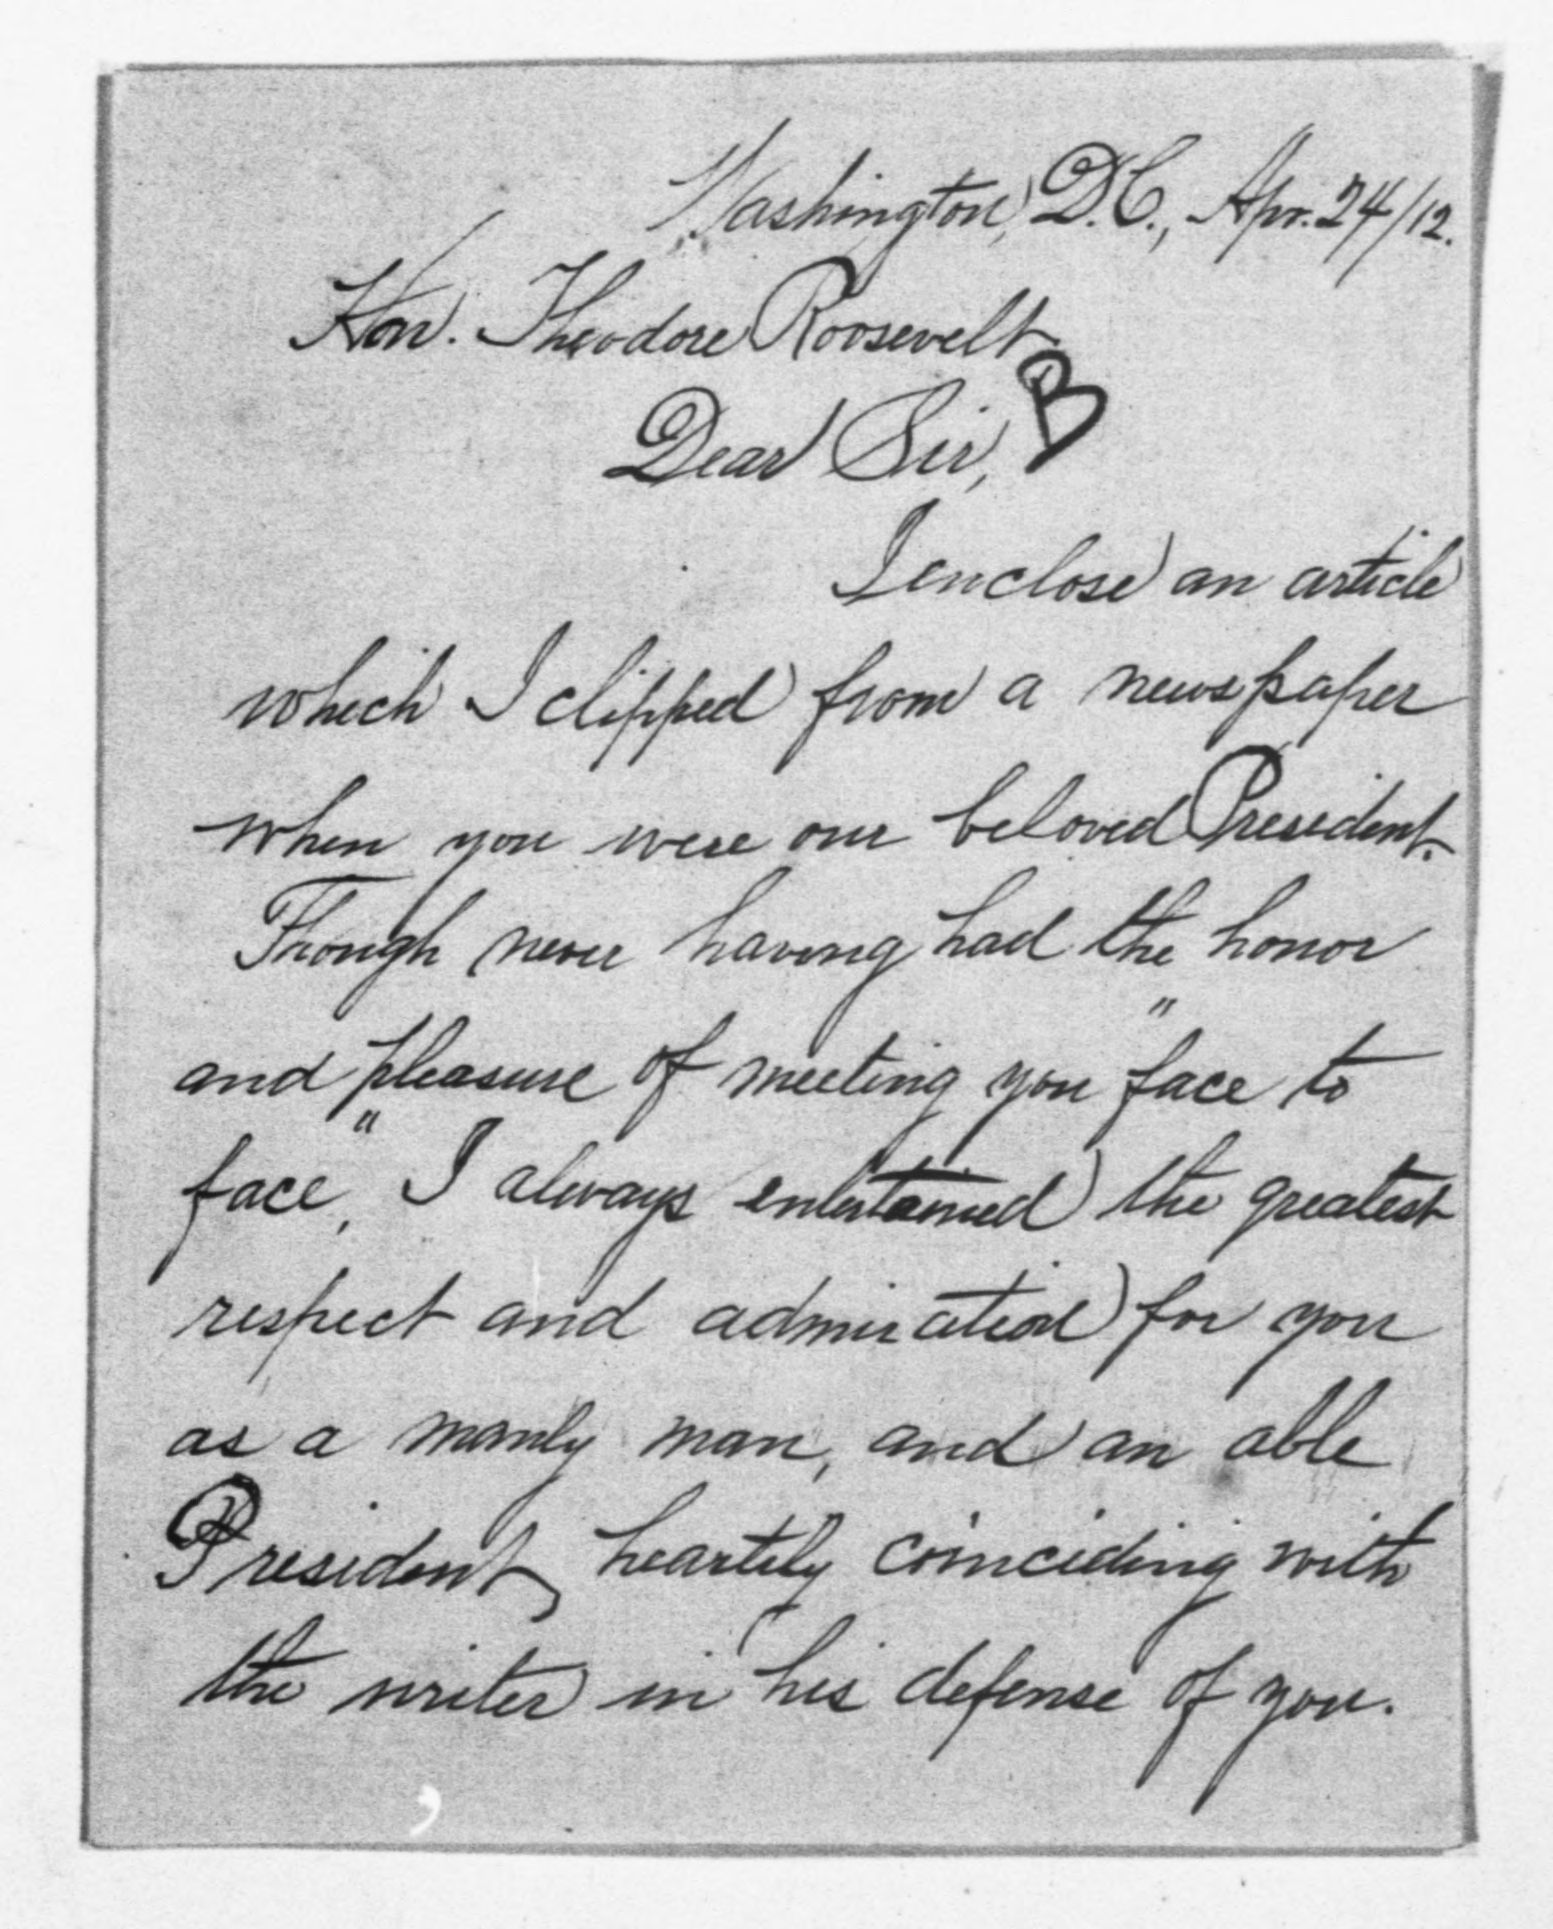 Washington, D.C., Apr. 24/12.
Hon. Theodore Roosevelt
B
Dear Sir,
I enclose an article
which I clipped from a newspaper
when you were our beloved President.
Though never having had the honor
and pleasure of meeting you "face to
face", I always entertained the greatest
respect and admiration for you
as a manly man, and an able
President, heartily coinciding with
the writer in his defense of you.